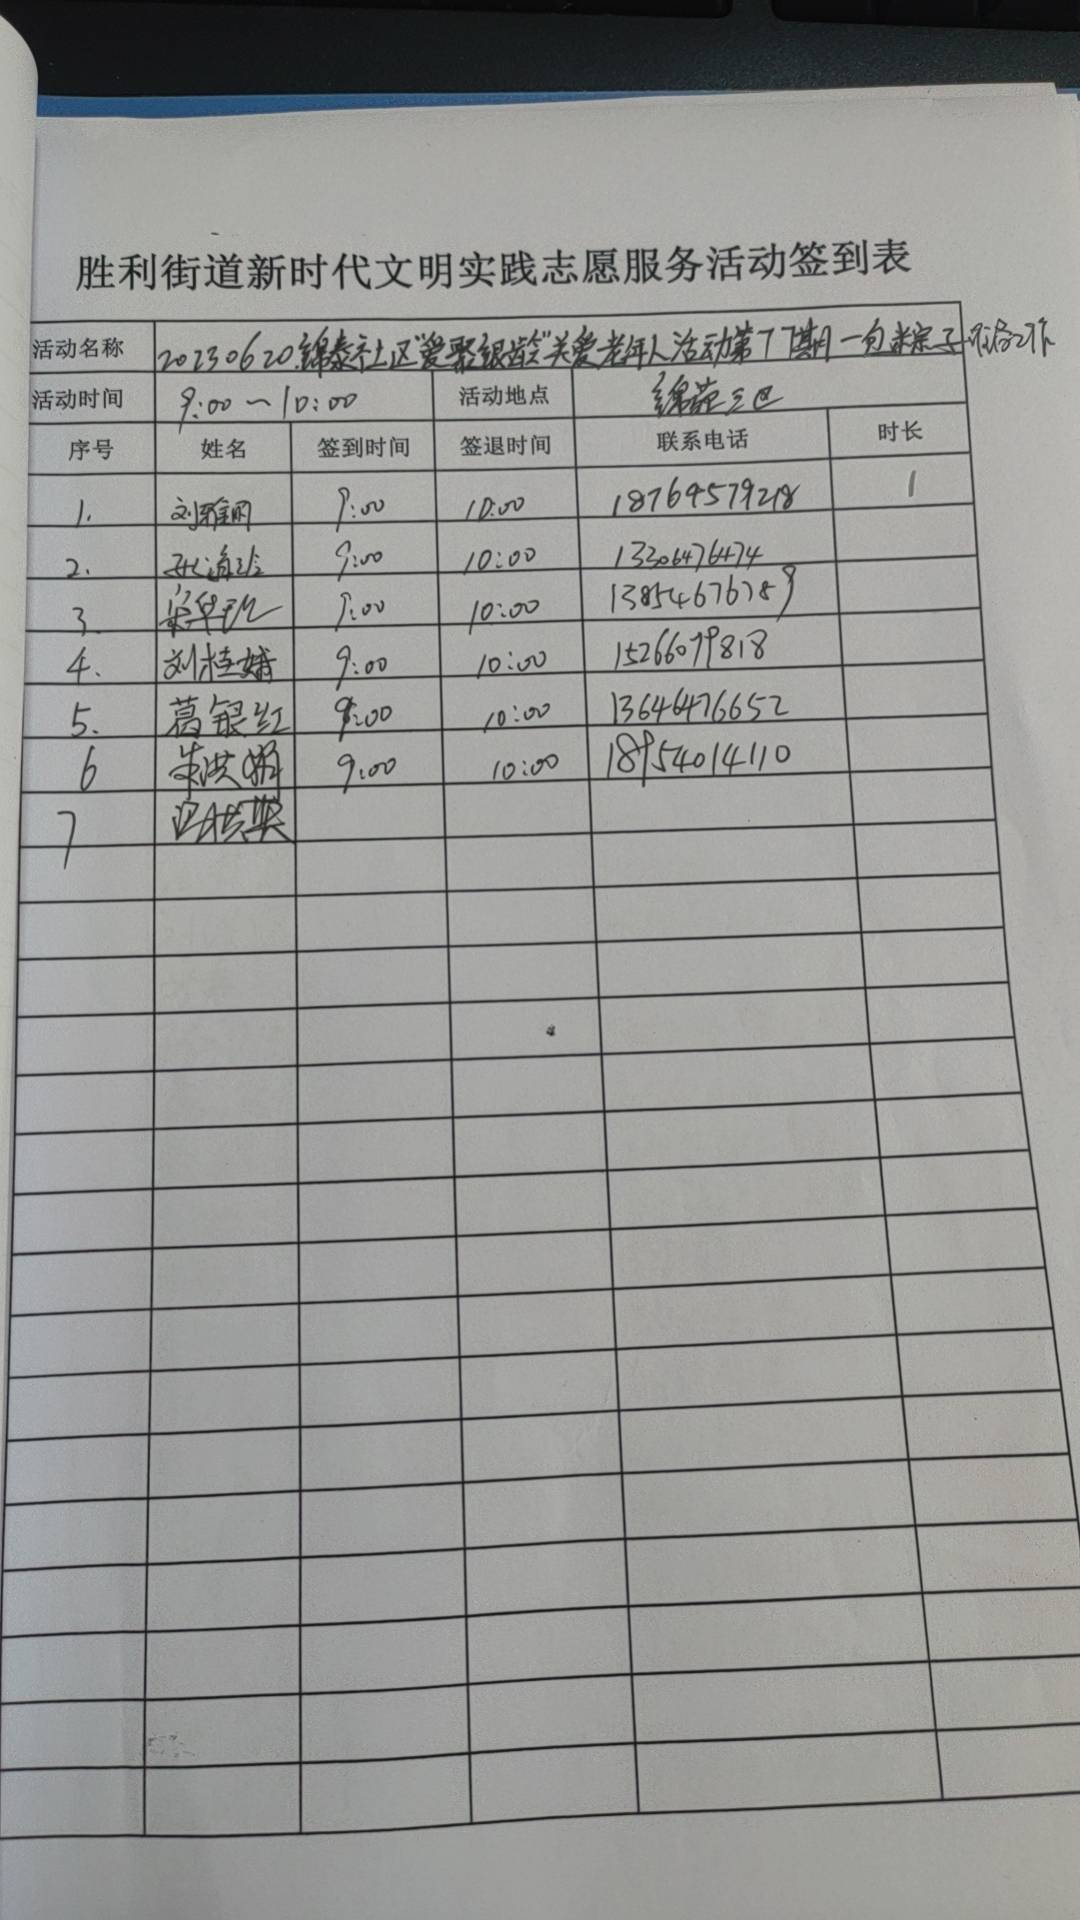 胜利街道新时代文明实践志愿服务活动签到表
活动名称 20230620.锦泰社区"爱聚银龄"关爱老年人活动第77期—包粽子
活动时间 9:00～10:00 活动地点 锦苑三区
序号 姓名 签到时间 签退时间 联系电话 时长
1. 刘雅丽 9:00 10:00 18764579218 1
2. 9:00 10:00 13306476474
3. 9:00 10:00 13854676789
4. 刘桂娥 9:00 10:00 15266079818
5. 葛银红 9:00 10:00 13646476652
6 朱洪娟 9:00 10:00 18954014110
7